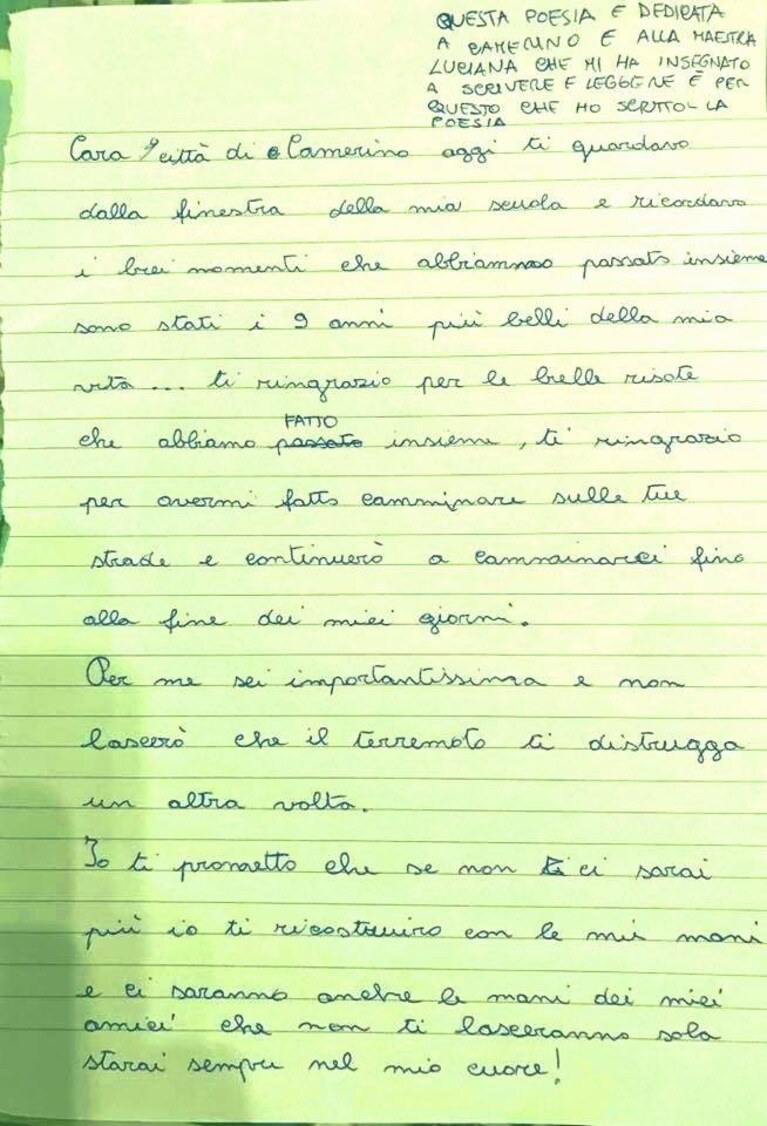 QUESTA POESIA E DEDICATA
A CAMERINO E ALLA MAESTRA
LUCIANA CHE MI HA INSEGNATO
A SCRIVERE E LEGGERE È PER
QUESTO CHE HO SCRITTO LA
POESIA
Cara città di Camerino aggi ti guardavo
dalla finestra della mia scuola e ricordavo
i bei momenti che abbiammo passato insieme
sono stati i 9 anni più belli della mia
vita ... ti ringrazio per le belle risate
FATTO
che abbiamo passato insieme, ti ringrazio
per avermi fatto camminare sulle tue
strade e continuerò a camminarci fino
alla fine dei miei giorni.
Per me sei importantissima e non
lascerò che il terremoto ti distrugga
un altra volta.
Io ti prometto che se non ci sarai
più io ti ricostruiro con le mie mani
e ci saranno anche le mani dei miei
amici che non ti lasceranno sola
starai sempre nel mio cuore!